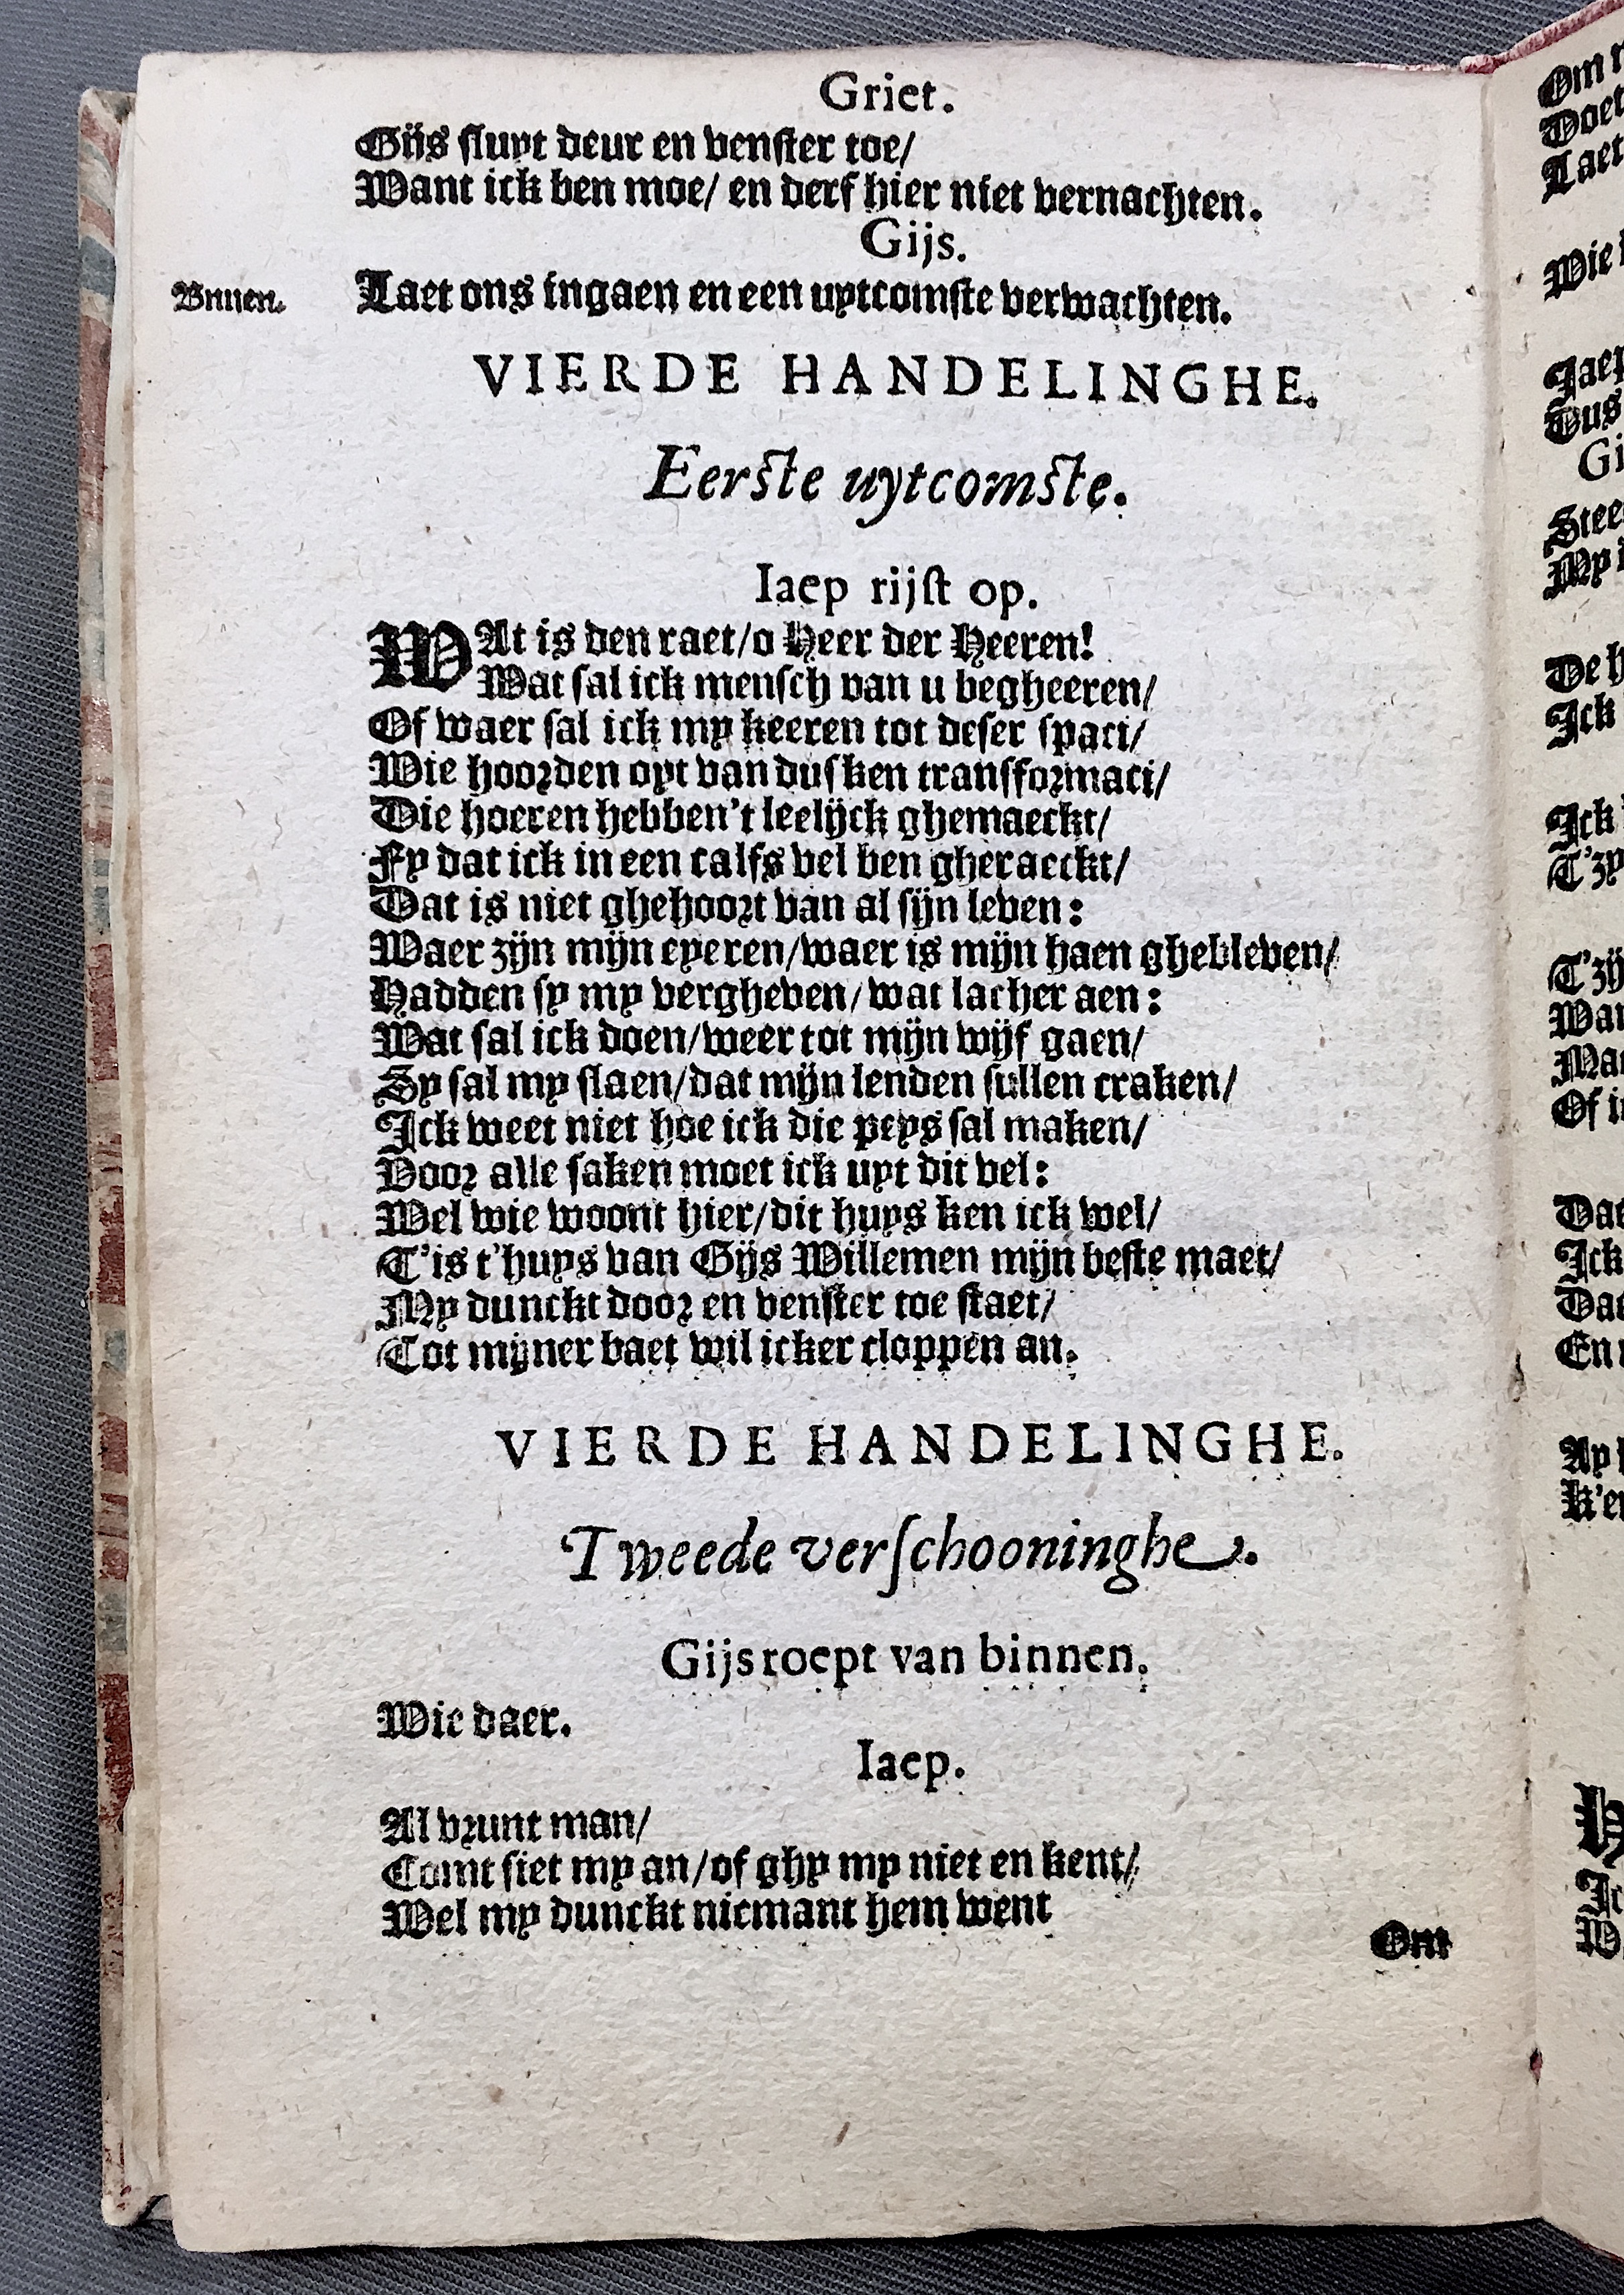 Griet.
Gijs sluyt deur en venster toe/
Want ick ben moe/ en derf hier niet vernachten.
Gijs.
Bnnen. Laet ons ingaen en een uytcomste verwachten.
VIERDE HANDELINGHE.
Eerste uytcomste.
Iaep rijst op.
WAt is den raet/o Heer der Heeren!
Wat sal ick mensch van u begheeren/
Of waer sal ick my keeren tot deser spaci/
Wie hoorden oyt van dusken transformaci/
Die hoeren hebben't leelijck ghemaeckt/
Fy dat ick in een calfs vel ben gheraeckt/
Dat is niet ghehoort van al sijn leven:
Waer zijn mijn eyeren/waer is mijn haen ghebleven/
Hadden sy my vergheven/wat lacher aen:
Wat sal ick doen/weer tot mijn wijf gaen/
Sy sal my slaen/dat mijn lenden sullen craken/
Ick weet niet hoe ick die peys sal maken/
Voor alle saken moet ick uyt dit vel:
Wel wie woont hier/dit huys ken ick wel/
T'is t'huys van Gijs Willemen mijn beste maet/
My dunckt door en venster toe staet/
Tot mijner baet wil icker cloppen an.
VIERDE HANDELINGHE.
Tweede verschooninghe.
Gijs roept van binnen.
Wie daer.
Iaep.
Al vrunt man/
Comt siet my an/of ghy my niet en kent/
Wel my dunckt niemant hem went
Om
Om
Doet
Laet
Wie
Jaep
Dus
Gi
Stee
My
De h
Ick
Ick
T'zy
T'zij
Wan
Mae
Of i
Dat
Ick
Dat
En
Ay
K'en
H
Ic
W